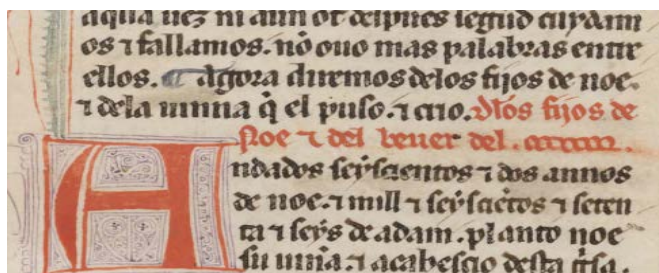 aquella uez ni aun of despues segund cuydam
os ⁊ fallamos. nõ ouo mas palabras entre
ellos. ¶ Agora diremos delos fijos de noe.
⁊ dela uinna q̃ el puso. ⁊ crio. Dlos fijos de
Noe ⁊ del beuer del
Andados seyscientos ⁊ dos annos
de noe. ⁊ mill ⁊ seysciẽtos ⁊ seten
ta ⁊ seys de adam. planto noe
su uinna. ⁊ acabescio desta g̃sa.